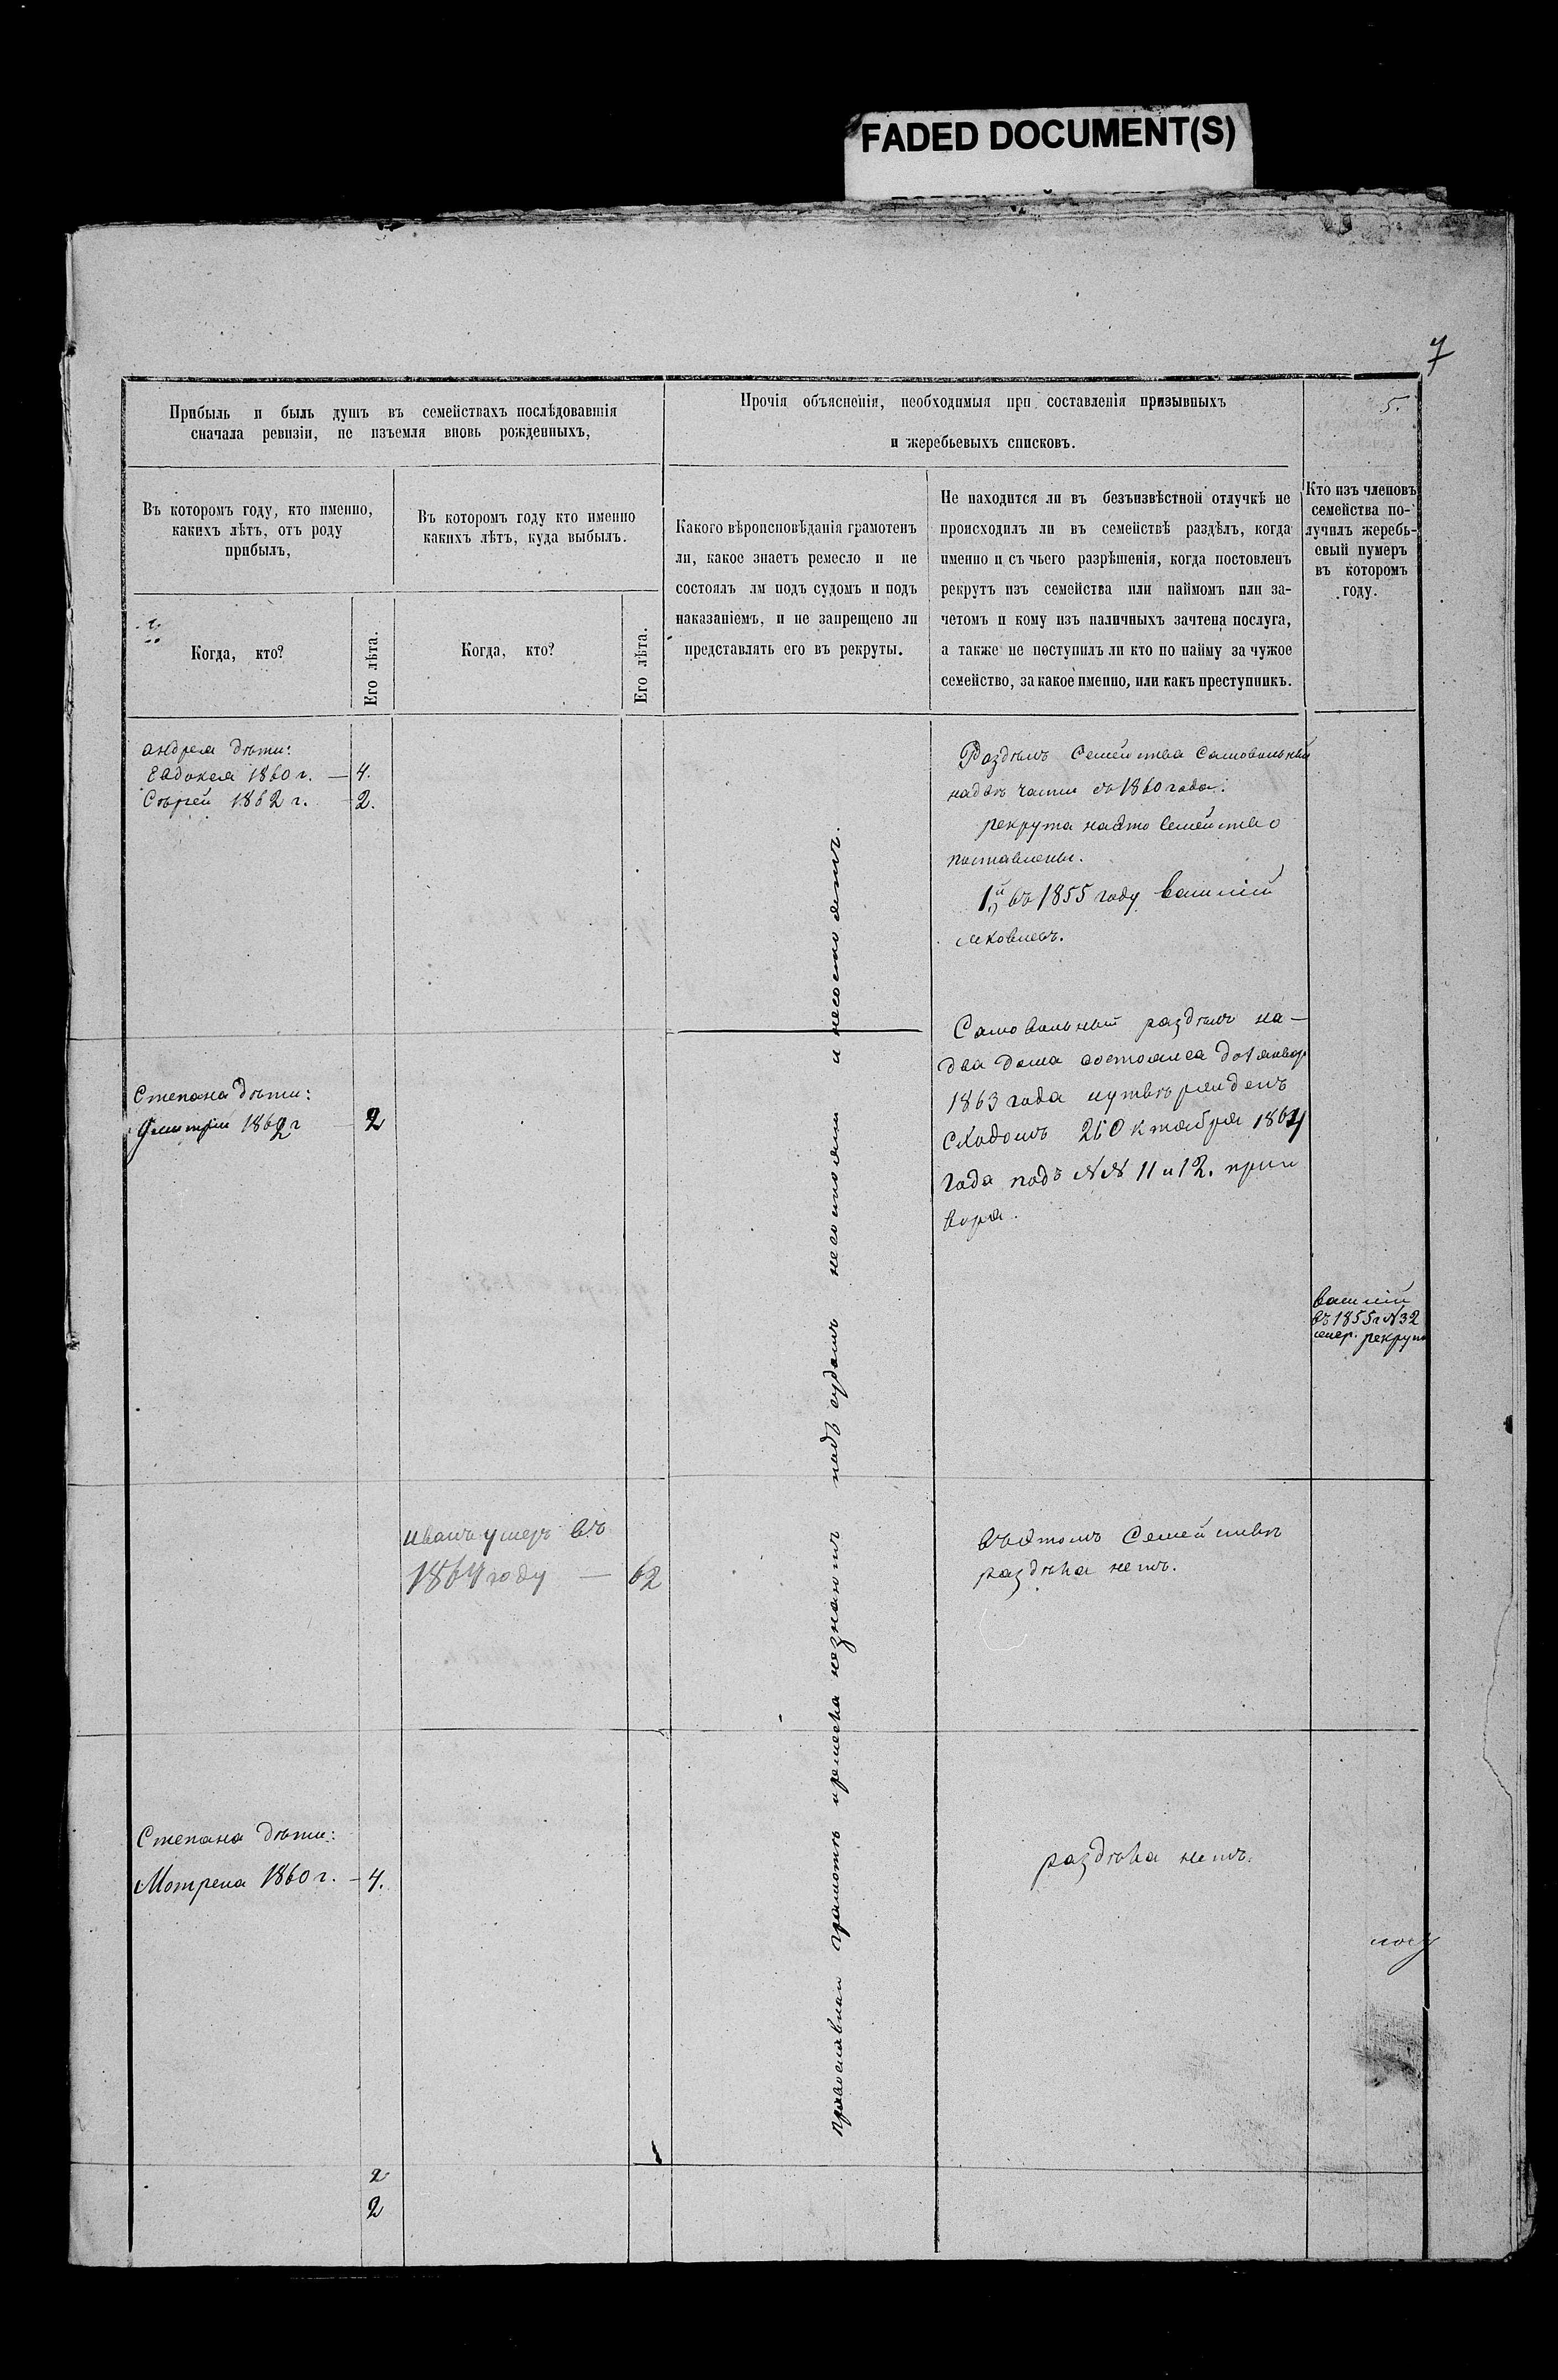 FADED DOCUMENT(S)
7
5.
Прибыль и быль душъ въ семействахъ послѣдовавшія
сначала ревизіи, не изъемля вновь рожденныхъ,
Прочія объясненія, необходимыя при составленія призывныхъ
и жеребьевыхъ списковъ.
Въ которомъ году, кто именно,
какихъ лѣтъ, отъ роду
прибылъ,
Въ которомъ году кто именно
какихъ лѣтъ, куда выбылъ.
Какого вѣроисповѣданія грамотенъ
ли, какое знаетъ ремесло и не
состоялъ лм подъ судомъ и подъ
наказаніемъ, и не запрещено ли
представлять его въ рекруты.
Не находится ли въ безъизвѣстной отлучкѣ не
происходилъ ли въ семействѣ раздѣлъ, когда
именно и съ чьего разрѣшенія, когда постовленъ
рекрутъ изъ семейства или наймомъ или за-
четомъ и кому изъ наличныхъ зачтена послуга,
а также не поступилъ ли кто по найму за чужое
семейство, за какое именно, или какъ преступникъ.
Кто изъ членовъ
семейства по-
лучилъ жеребь-
евый нумеръ
въ которомъ
году.
Когда, кто?
Его лѣта.
Когда, кто?
Его лѣта.
андрея дѣти:
Евдокея 1860 г. — 4.
Сѣргей 1862 г. 2.
Раздѣлъ Семейства Самовольный
надвѣ части въ 1860 года.
рекрута наэто Семейство
поставлены.
1й въ 1855 году василій
яковлевъ.
Самовольный раздѣлъ на-
два дома состоялся до 1 январ
1863 года иутвѣржденъ
Сходомъ 26 Октября 1864
года подъ №№ 11 и 12. приго
вора.
Степана дѣти:
Дмитрій 1862 г 2
василій
въ 1855 г № 32
рекрут
иванъ умеръ въ
1864 году — 62
въэтомъ Семействѣ
раздѣла нетъ.
Степана дѣти:
Мотрена 1860 г. - 4.
раздѣла нетъ.
православнаи грамотѣ иремесла незнаютъ подъ судомъ несостояли и несостоятъ.
2
2